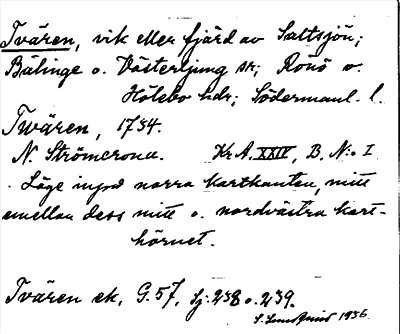 Tvären, vik eller fjärd av Saltsjön;
Bälinge o. Västerljung sn; Rönö o.
Hölebo hdr; Södermanl. l.
Twären, 1734.
N. Strömcrona. Kr.A. XXIV, B. N:o 1
Läge invid norra kartkanten, mitt
emellan dess mitt o. nordvästra kart-
hörnet.
Tvären ek, G.57, Sj: 238 o. 239.
1936